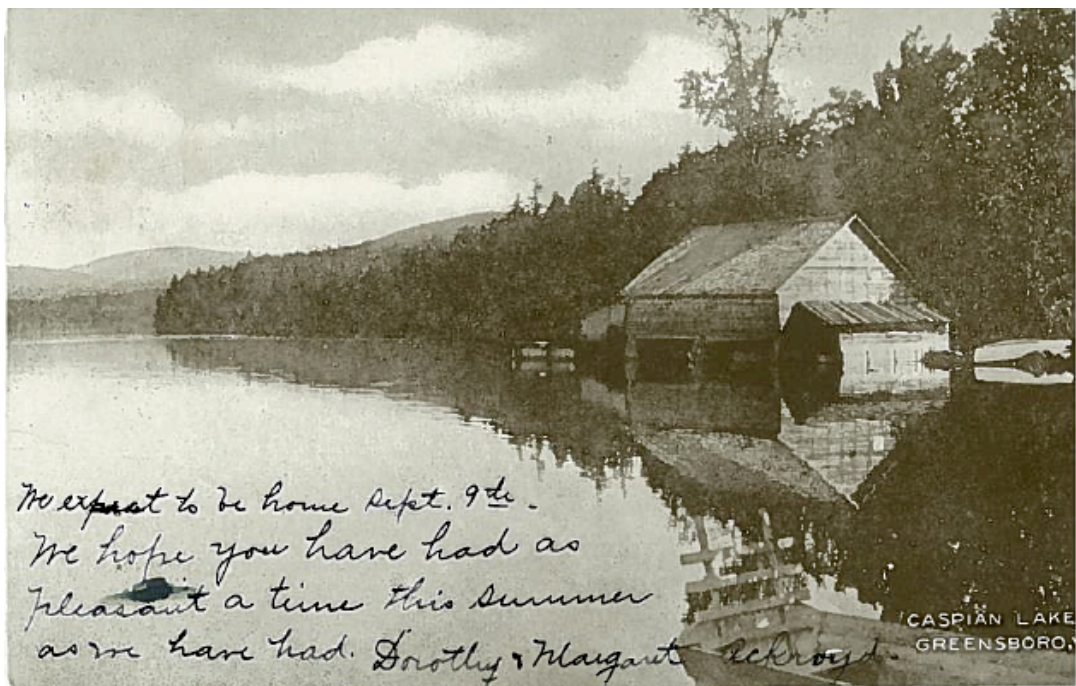 We expect to be home Sept. 9th.
We hope you have had as
pleasant a time this summer
as we have had. Dorothy & Margaret Ackroyd.
CASPIAN LAKE
GREENSBORO,